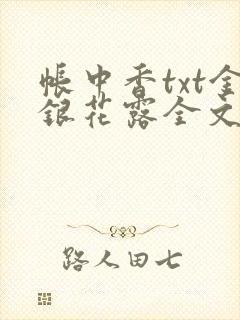 帳中香txt金
銀花露全文
路人田七